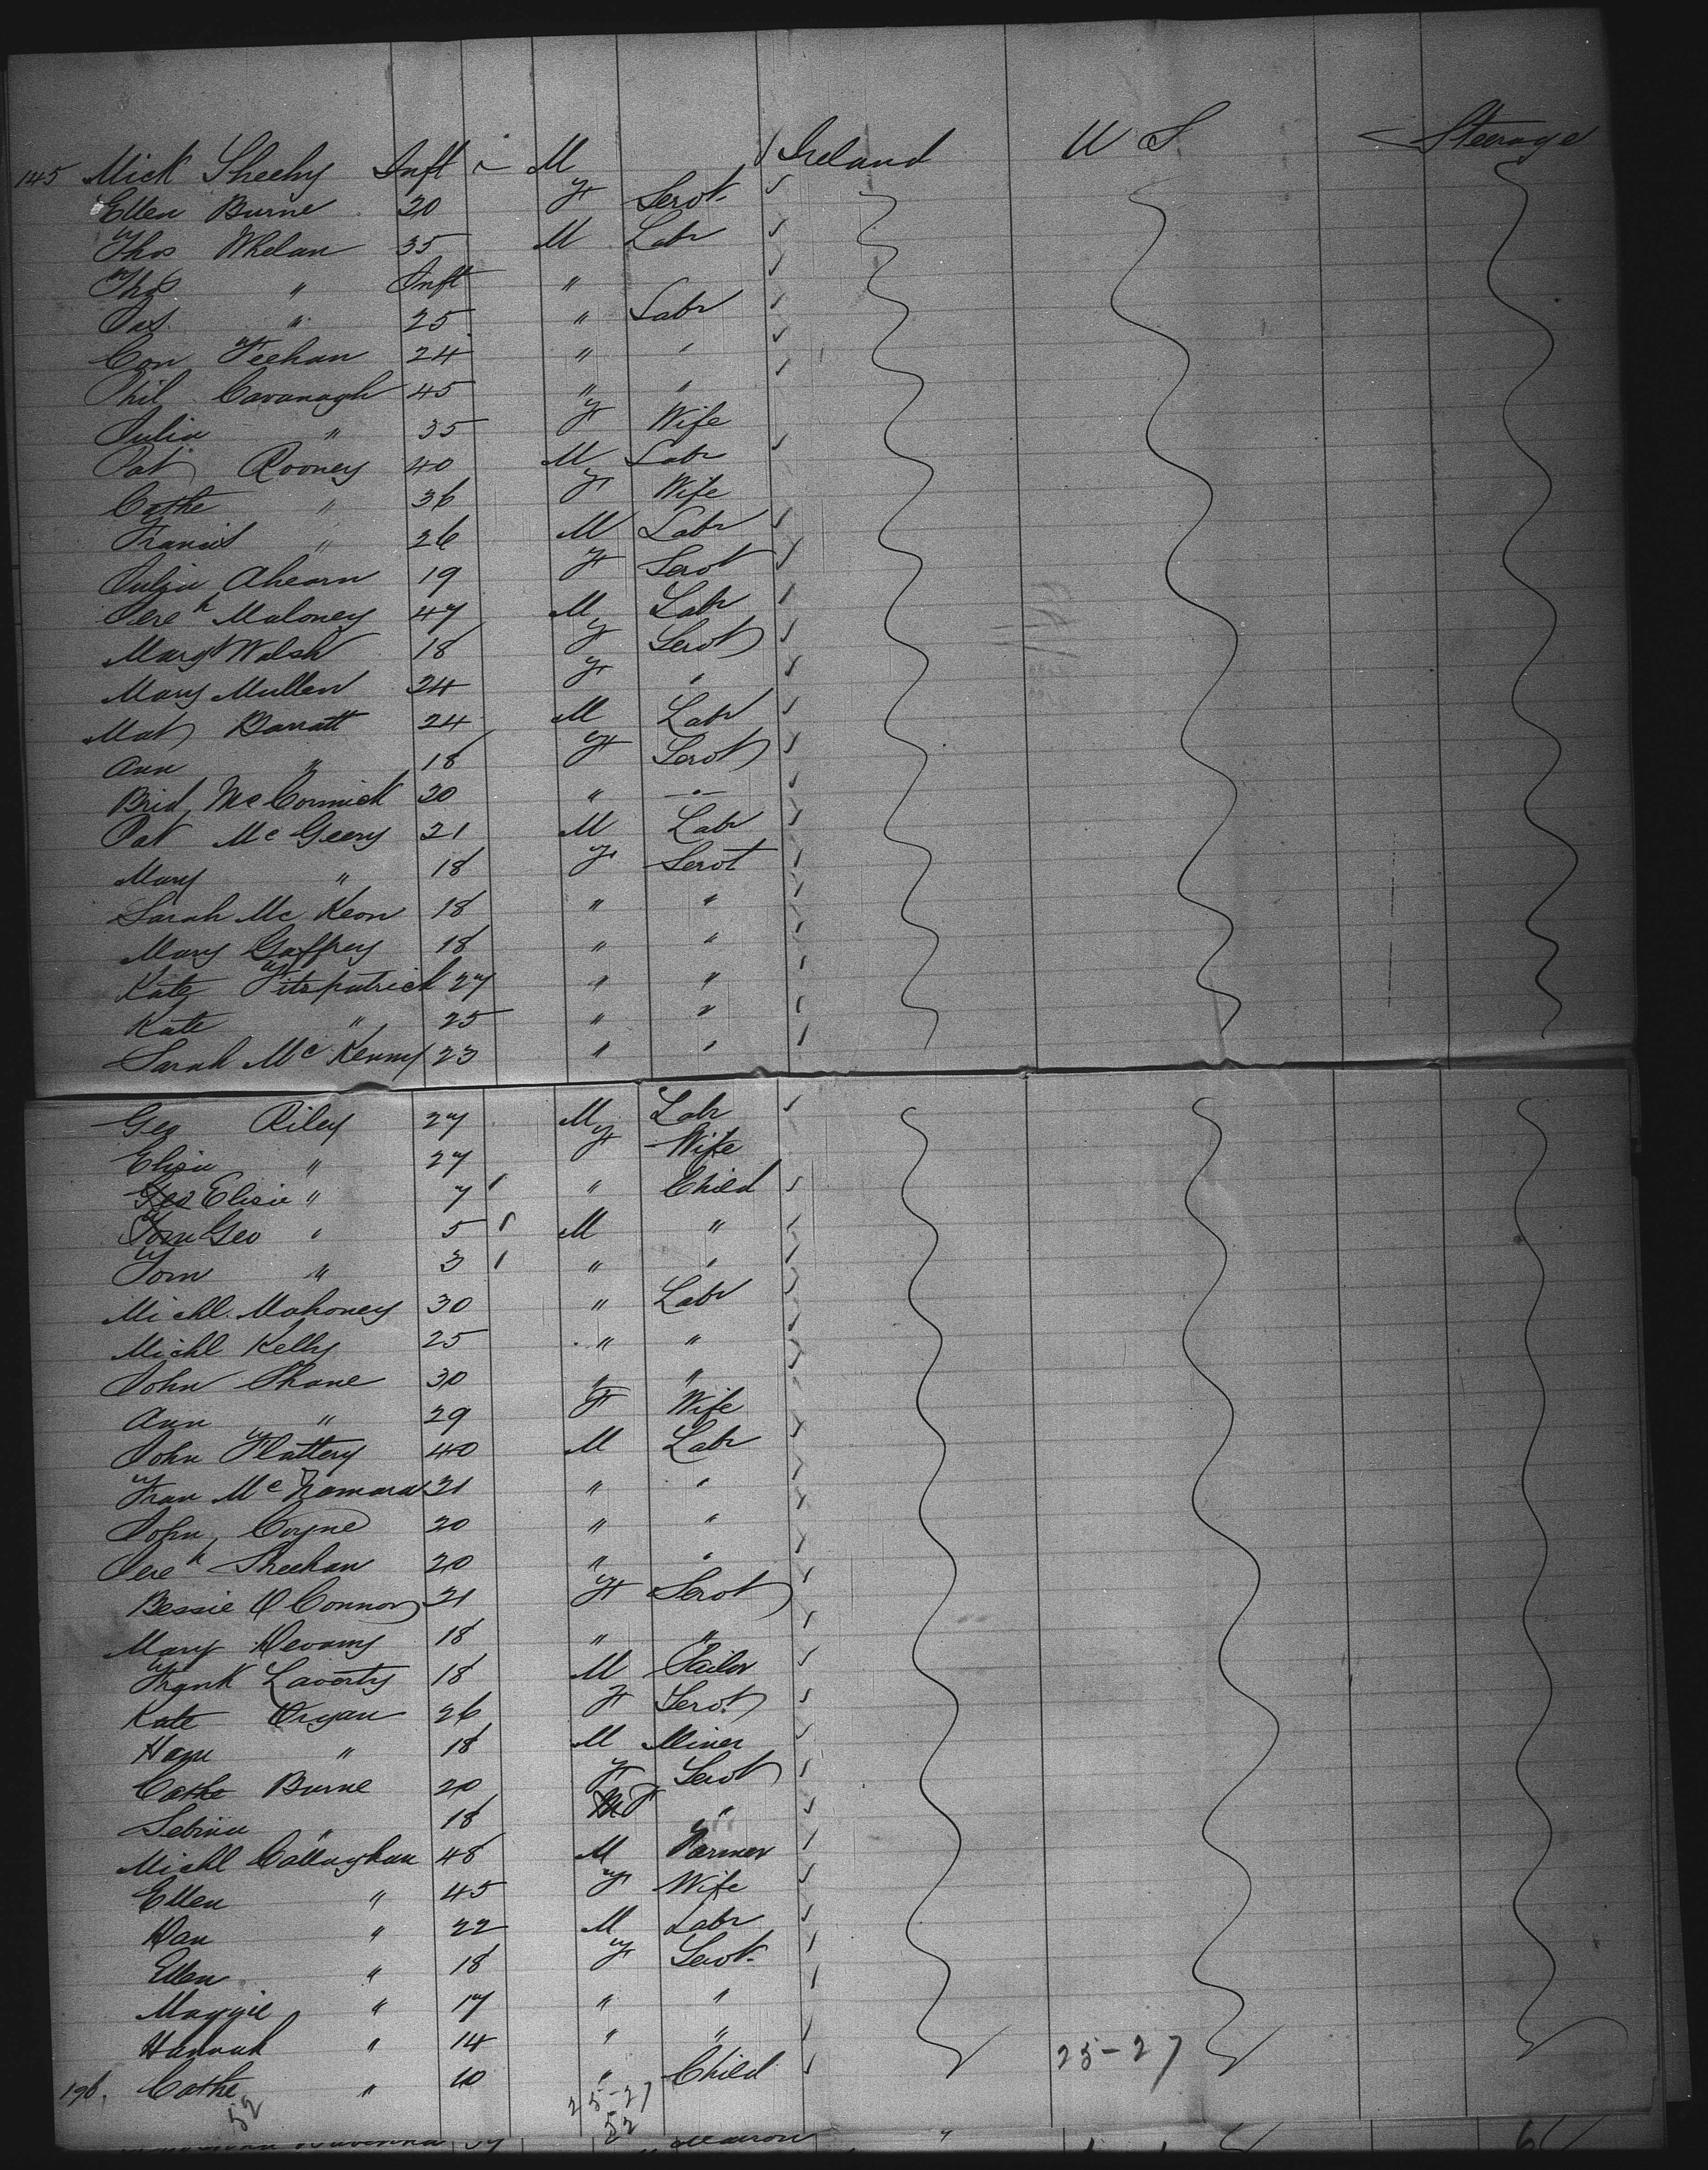 145 Mick Sheehy Inft M Ireland U S Steerage
Ellen Burne 20 F Servt
Thos Whelan 35 M Labr
Thos " Inft "
Jas. " 25 " Labr
Con Feehan 24 " "
Phil Cavanagh 45 " "
Julia " 35 F Wife
Pat Rooney 40 M Labr
Cathe " 36 F Wife
Francis " 26 M Labr
Julia Ahearn 19 F Servt
Jereh Maloney 47 M Labr
Margt Walsh 18 F Servt
Mary Mullen 24 F "
Mat Barratt 24 M Labr
Ann " 18 F Servt
Brid McCormick 20 " "
Pat McGeery 21 M Labr
Mary " 18 F Servt
Sarah McKeon 18 " "
Mary Gaffrey 18 " "
Kate Fitzpatrick 27 " "
Kate " 25 " "
Sarah McKenny 23 " "
Geo Riley 27 M Labr
Eliza " 27 F Wife
Geo Eliza " 7 " Child
Tom Geo " 5 M "
Tom " 3 " "
Michl. Mahoney 30 " Labr
Michl Kelly 25 " "
John Shane 30 " "
Ann " 29 F Wife
John Flattery 40 M Labr
Fran McNamara 21 " "
John Coyne 20 " "
Jereh Sheehan 20 " "
Bessie O Connor 21 F Servt
Mary 18 " "
Frank Laverty 18 M Tailor
Kate 26 F Servt
" 18 M Miner
Cathe Burne 20 F Servt
Sebina " 18 M F "
Michl Callaghan 48 M Farmer
Ellen " 45 F Wife
Dan " 22 M Labr
Ellen " 18 F Servt
Maggie " 17 " "
Hannah " 14 " "
196. Cathe " 10 " Child
25-27
52 25-27
52